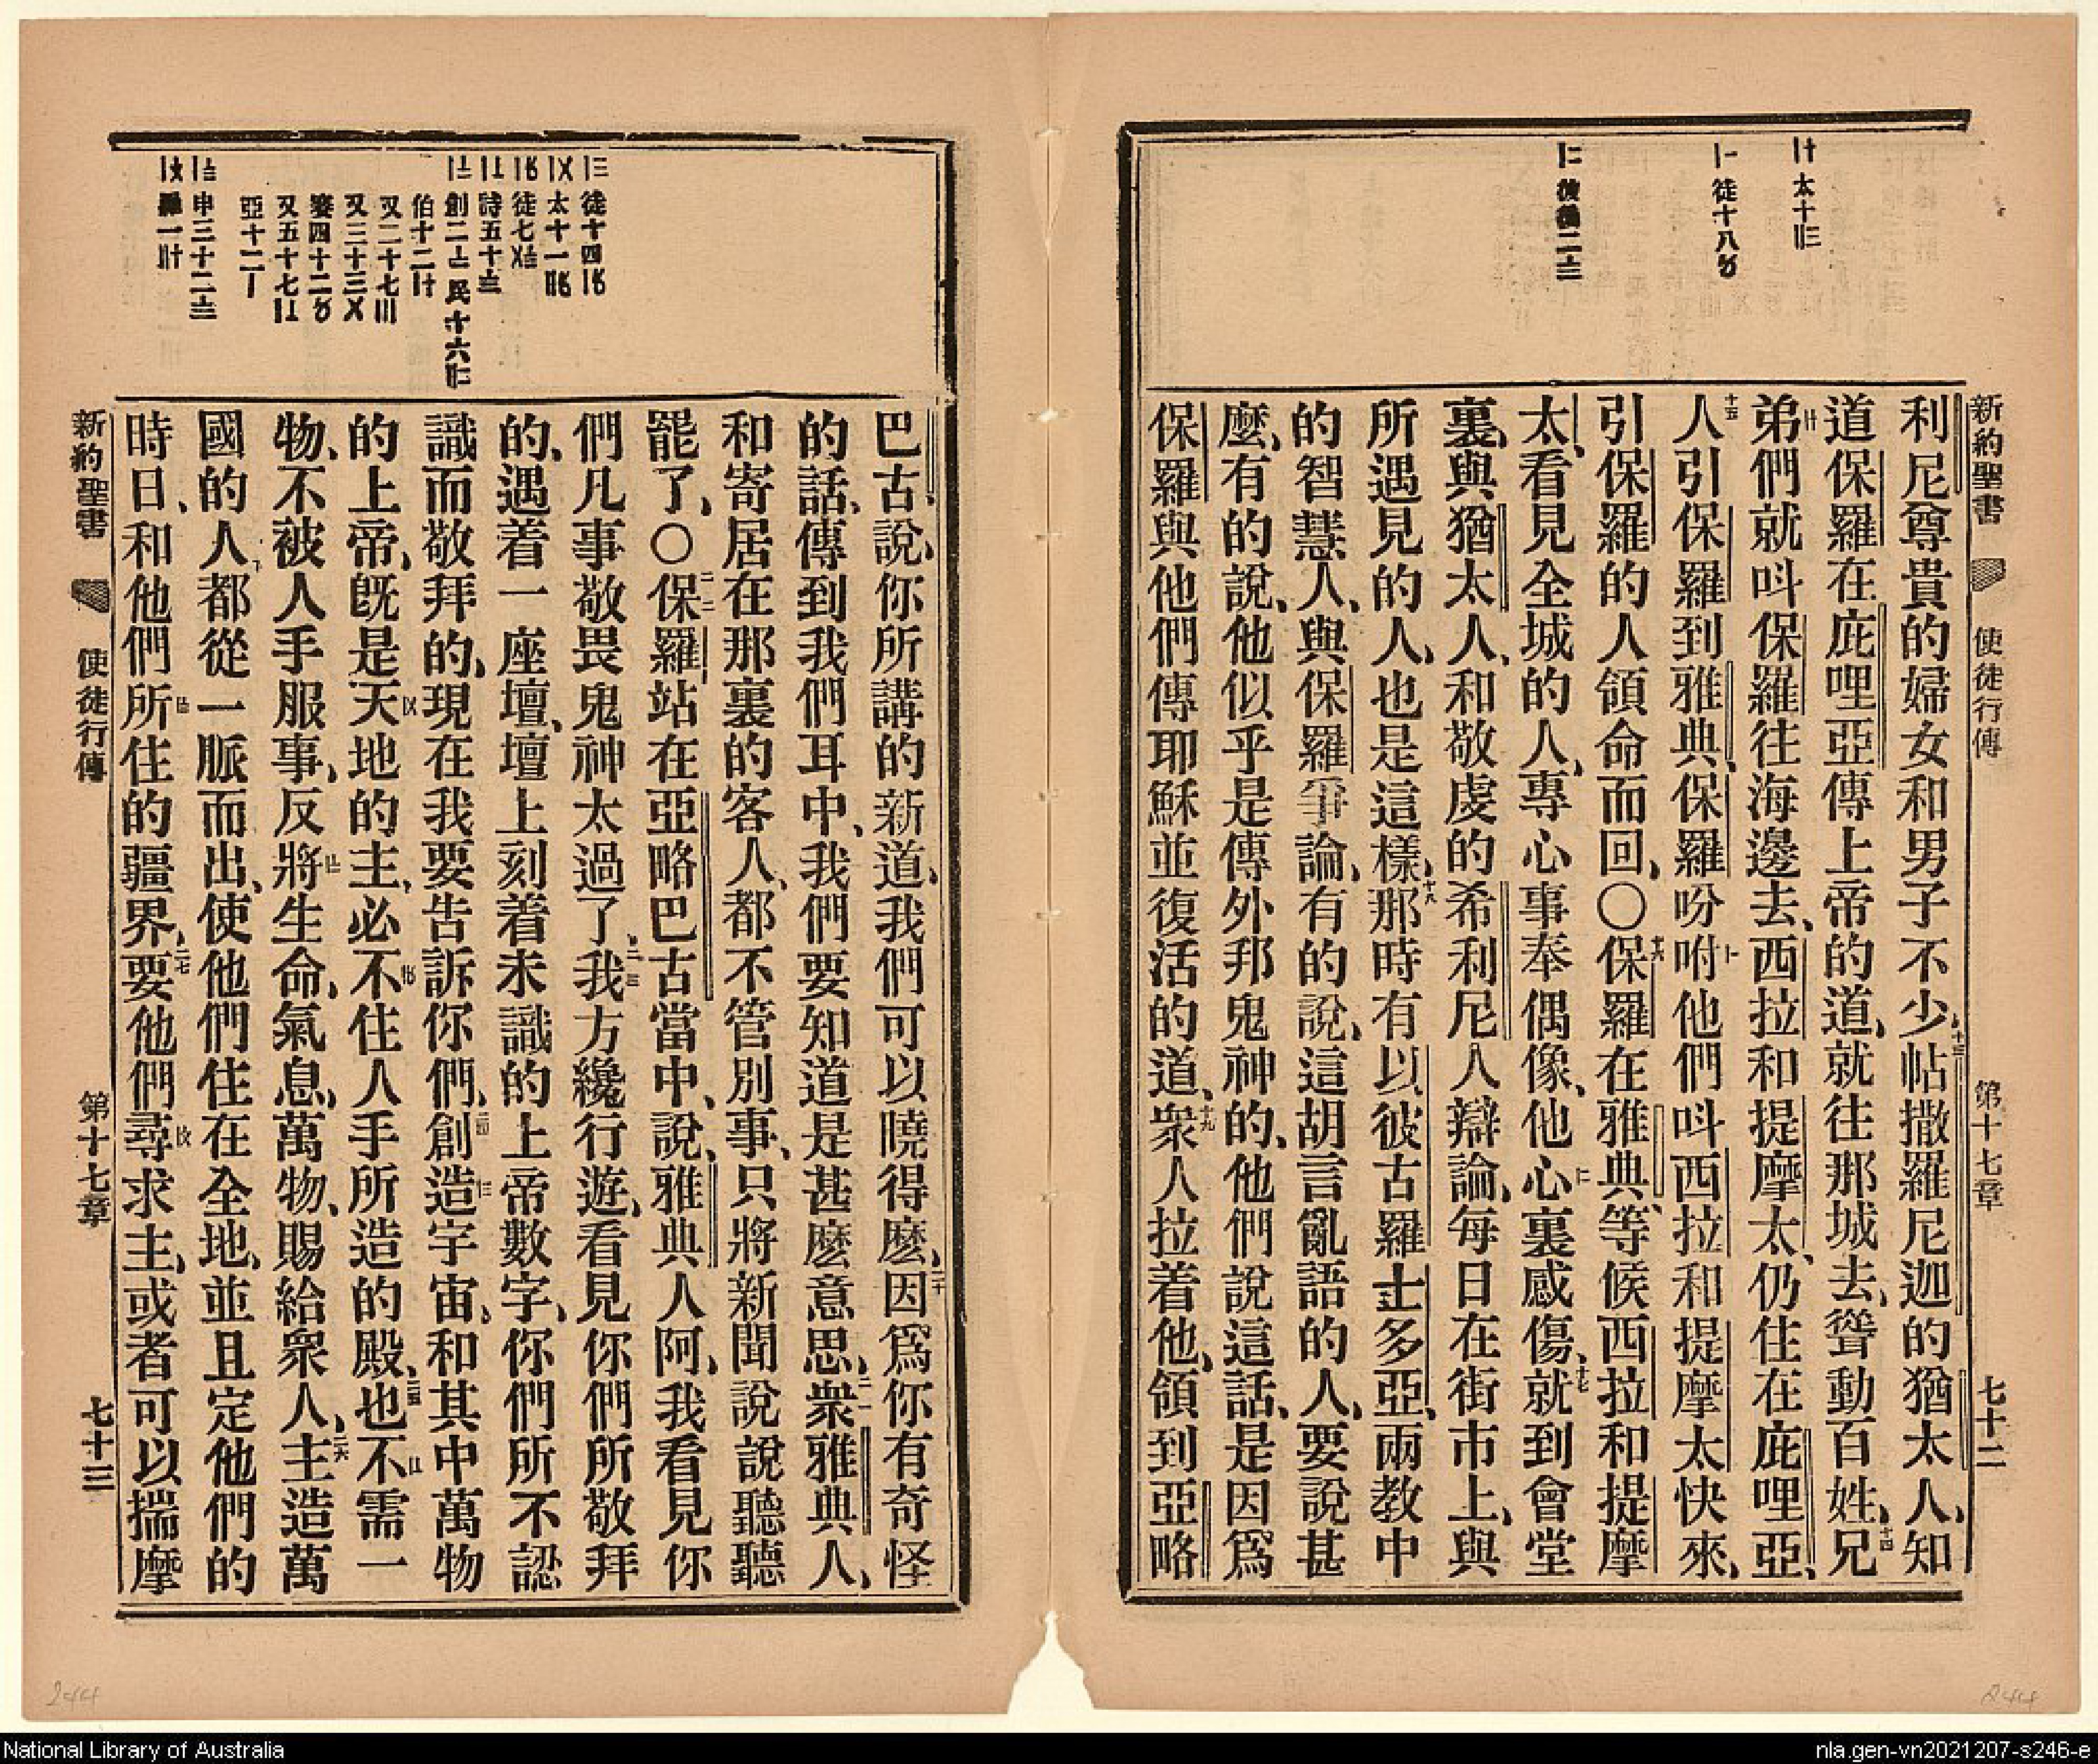 新約聖書 使徒行傳 第十七章 七十二
卄 太十〣
〡 徒十八〥
〢 彼後二〨
利尼尊貴的婦女和男子不少、十三帖撒羅尼迦的猶太人、知
道保羅在庇哩亞傳上帝的道、就往那城去、聳動百姓、十四兄
弟們就呌保羅往海邊去、西拉和提摩太、仍住在庇哩亞、
十五人引保羅到雅典、保羅吩咐他們呌西拉和提摩太快來、
引保羅的人領命而回、○十六保羅在雅典、等候西拉和提摩
太、看見全城的人、專心事奉偶像、他心裏感傷、十七就到會堂
裏、與猶太人、和敬虔的希利尼人辯論、每日在街市上、與
所遇見的人、也是這樣、十八那時有以彼古羅士多亞、兩教中
的智慧人、與保羅爭論、有的說、這胡言亂語的人、要說甚
麼、有的說、他似乎是傳外邦鬼神的、他們說這話、是因爲
保羅與他們傳耶穌並復活的道、十九衆人拉着他、領到亞略
徒十四
太十一
徒七
詩五十
創二 民十六
伯十二
又二十七
又三十三
賽四十二
又五十七
亞十二
申三十二
羅一
巴古、說、你所講的新道、我們可以曉得麽、二十因爲你有奇怪
的話、傳到我們耳中、我們要知道是甚麽意思、二一衆雅典人、
和寄居在那裏的客人、都不管別事、只將新聞說說聽聽
罷了、○二二保羅站在亞略巴古當中、說、雅典人阿、我看見你
們凡事敬畏鬼神太過了、二三我方纔行遊、看見你們所敬拜
的、遇着一座壇、壇上刻着未識的上帝數字、你們所不認
識而敬拜的、現在我要告訴你們、二四創造宇宙、和其中萬物
的上帝、既是天地的主、必不住人手所造的殿、二五也不需一
物、不被人手服事、反將生命、氣息、萬物、賜給衆人、二六主造萬
國的人、都從一脈而出、使他們住在全地、並且定他們的
時日、和他們所住的疆界、二七要他們尋求主、或者可以揣摩
新約聖書 使徒行傳 第十七章 七十三
244
244
National Library of Australia
nla.gen-vn2021207-s246-e